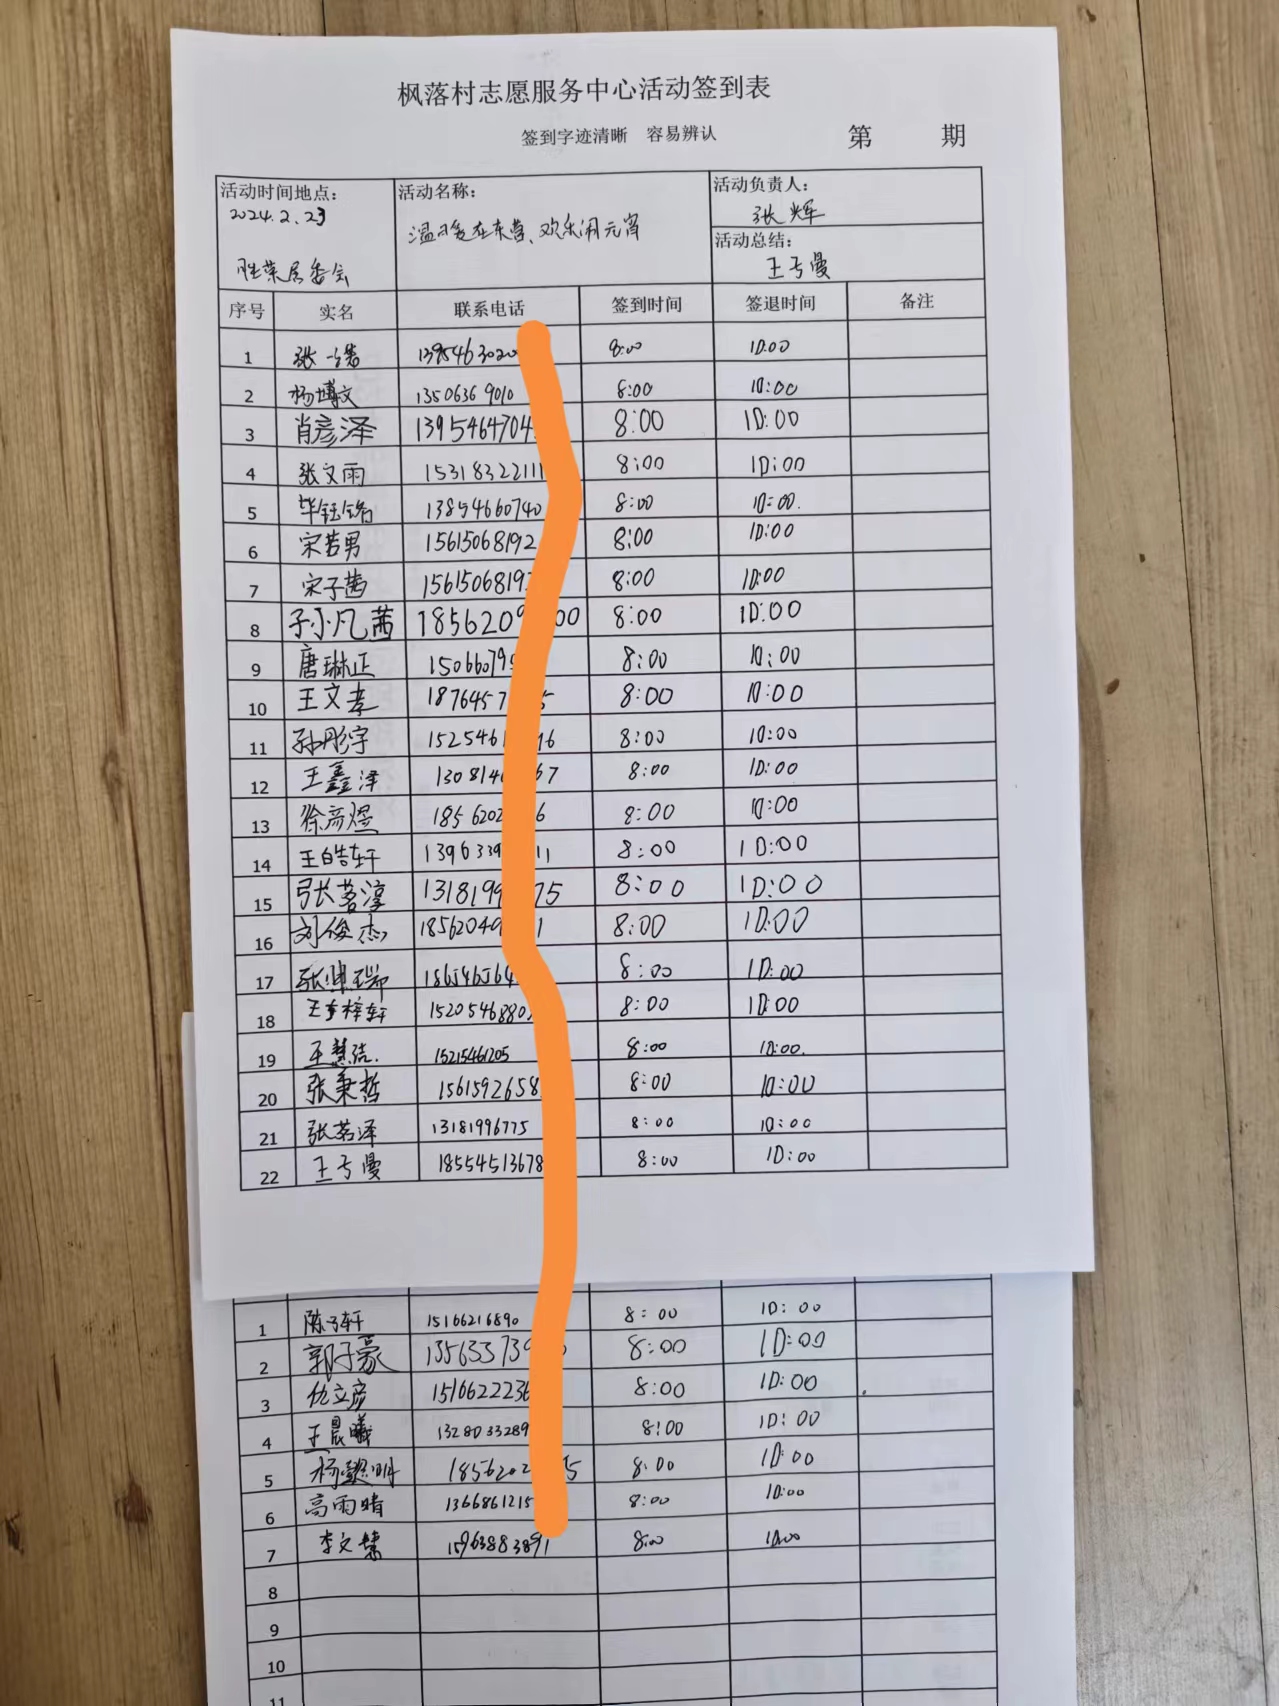 枫落村志愿服务中心活动签到表
签到字迹清晰 容易辨认 第 期
活动时间地点： 活动名称： 活动负责人：
2024.2.23 张辉
温暖在东营、欢乐闹元宵
活动总结：
胜菜居委会 王亏曼
序号 实名 联系电话 签到时间 签退时间 备注
1 张 8:00 10:00
2 杨博文 1350636 9010 8:00 10:00
3 肖彦泽 1395464704 8:00 10:00
4 张文雨 15318322111 8:00 10:00
5 毕钰铭 13854660740 8:00 10:00.
6 宋若男 15615068192 8:00 10:00
7 宋子茜 1561506819 8:00 10:00
8 孙凡茜 185620 00 8:00 10:00
9 唐琳正 15066079 8:00 10:00
10 王文孝 1876457 5 8:00 10:00
11 孙彤宇 1525461 16 8:00 10:00
12 王鑫泽 130814 67 8:00 10:00
13 徐彦煜 1856202 6 8:00 10:00
14 王皓轩 1396339 11 8:00 10:00
15 张茗淳 1318199 75 8:00 10:00
16 刘俊杰 18562049 1 8:00 10:00
17 张 瑞 186546564 8:00 10:00
18 王 梓轩 1520546880 8:00 10:00
19 王慧洁. 15215461205 8:00 10:00.
20 张秉哲 1561592658 8:00 10:00
21 张茗泽 13181996775 8:00 10:00
22 王亏曼 18554513678 8:00 10:00
1 陈子轩 15166216890 8:00 10:00
2 郭子豪 135633739 8:00 10:00
3 仇立彦 1516622236 8:00 10:00
4 王晨曦 1328033289 8:00 10:00
5 杨懿明 1856202 5 8:00 10:00
6 高雨晴 1366861215 8:00 10:00
7 李文慧 15963883891 8:00 10:00
8
9
10
11